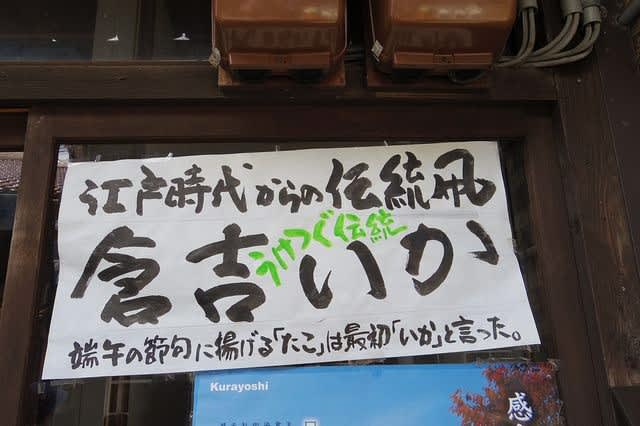 江戸時代からの伝統凧
うけつぐ伝統
倉吉いか
端午の節句に揚げる「たこ」は最初「いか」と言った。
Kurayoshi
感